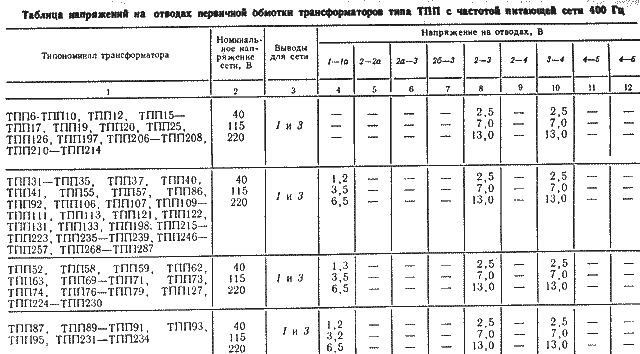 Таблица напряжений на отводах первичной обмотки трансформаторов типа ТПП с частотой питающей сети 400 Гц
Типономинал трансформатора
Номиналь-
ное нап-
ряжение
сети, В
Выводы
для сети
Напряжение на отводах, В
1—1а 2—2а 2а—3 2б—3 2—3 2—4 3—4 4—5 4—6
1 2 3 4 5 6 7 8 9 10 11 12
ТПП6-ТПП10, ТПП12, ТПП15— 40 — — — — 2,5 — 2,5 — —
ТПП17, ТПП19, ТПП20, ТПП25, 115 1 и 3 — — — — 7,0 — 7,0 — —
ТПП126, ТПП197, ТПП206—ТПП208, 220 — — — — 13,0 — 13,0 — —
ТПП210—ТПП214
ТПП31—ТПП35, ТПП37, ТПП40, 40 1,2 — — — 2,5 — 2,5 — —
ТПП41, ТПП55, ТПП57, ТПП86, 115 1 и 3 3,5 — — — 7,0 — 7,0 — —
ТПП92, ТПП106, ТПП107, ТПП109— 220 6,5 — — — 13,0 — 13,0 — —
ТПП111, ТПП113, ТПП121, ТПП122,
ТПП131, ТПП133, ТПП198, ТПП215—
ТПП223, ТПП235—ТПП239, ТПП246—
ТПП257, ТПП268—ТПП287
ТПП52, ТПП58, ТПП59, ТПП62, 40 1,3 — — — 2,5 — 2,5 — —
ТПП63, ТПП69—ТПП71, ТПП73, 115 1 и 3 3,5 — — — 7,0 — 7,0 — —
ТПП74, ТПП76—ТПП79, ТПП127, 220 6,5 — — — 13,0 — 13,0 — —
ТПП224—ТПП230
ТПП87, ТПП89—ТПП91, ТПП93, 40 1 и 3 1,2 — — — 2,5 — 2,5 — —
ТПП95, ТПП231—ТПП234 115 3,2 — — — 7,0 — 7,0 — —
220 6,5 — — — 13,0 — 13,0 — —